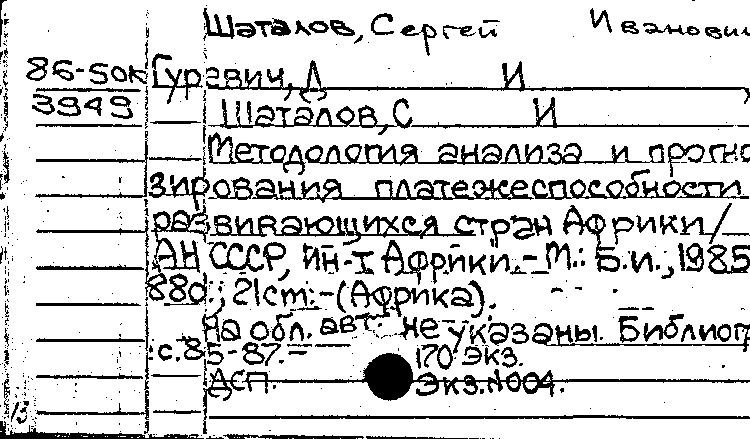 Шаталов, Сергей Иванович
86-50К Гуревич, Д И
3949 Шаталов, С И
Методология анализа и прогно
зирования платежеспособности
развивающихся стран Африки/
АН СССР, Ин-т Африки.-М.: Б.и., 1985
88с.; 21см.-(Африка).
На обл. авт. не указаны. Библиог
:с.85-87.- 170 экз.
ДСП. Экз.N004.
13